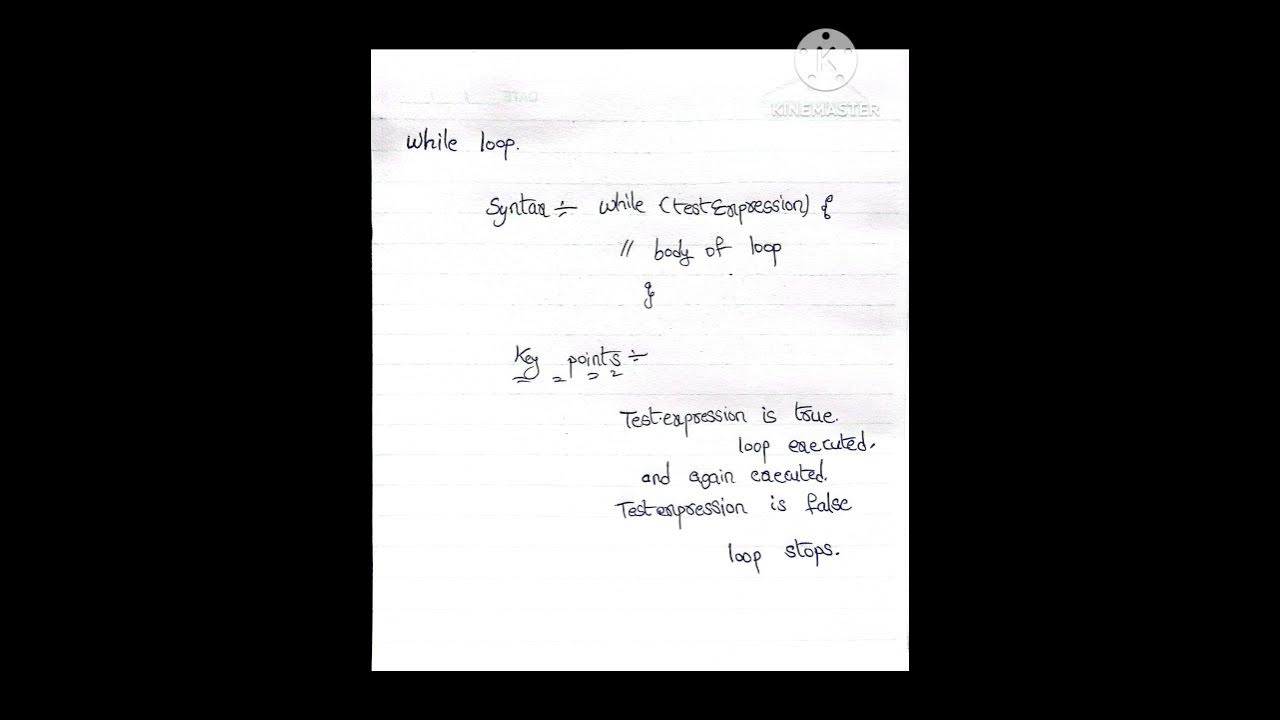 KINEMASTER
DATE
While loop.
Syntax :- while (testExpression) {
// body of loop
}
Key points :-
Test expression is true.
loop executed.
and again executed.
Test expression is false
loop stops.